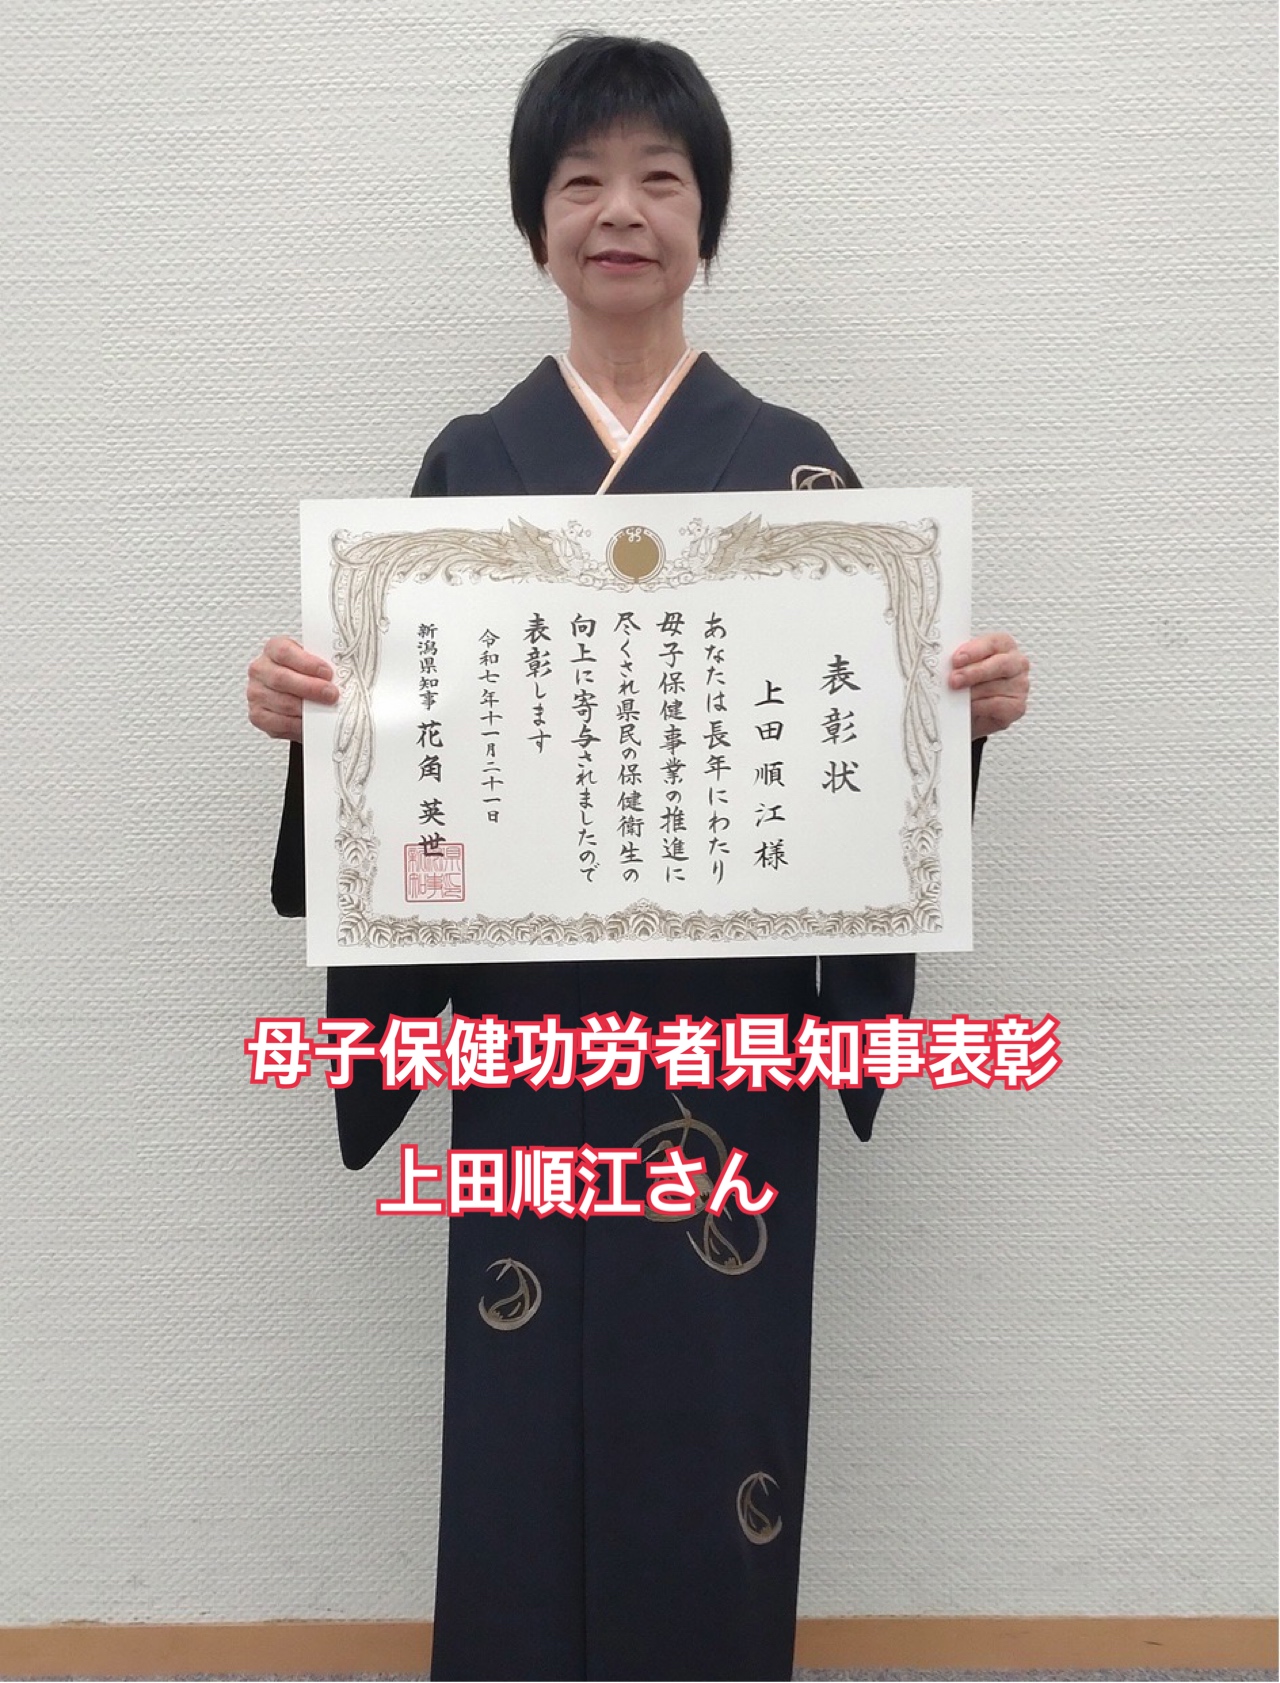 表彰状
上田順江様
あなたは長年にわたり
母子保健事業の推進に
尽くされ県民の保健衛生の
向上に寄与されましたので
表彰します
令和七年十一月二十一日
新潟県知事 花角英世
母子保健功労者県知事表彰
上田順江さん